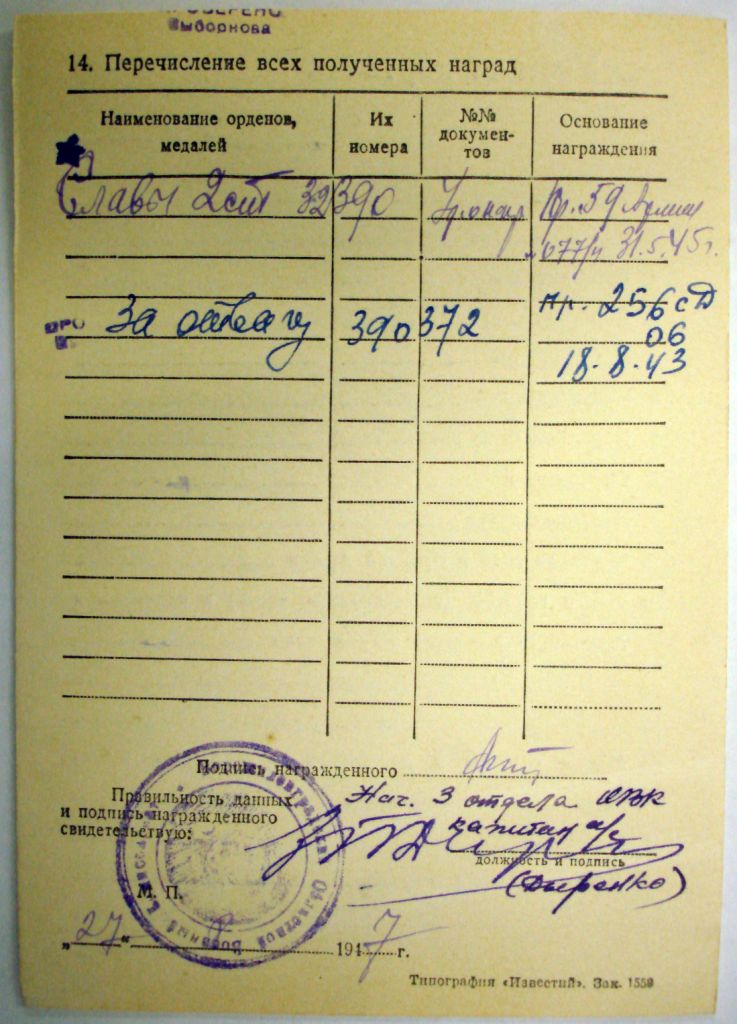 ПРОВЕРЕНО
Выборнова
14. Перечисление всех полученных наград
Наименование орденов, медалей
Их номера
№№ докумен-тов
Основание награждения
Славы 2 ст 32390 Пр. 59 Армии
077/н 31.5.45г.
За отвагу 390372 Пр. 256 сД
06
18.8.43
Подпись награжденного
Правильность данных
и подпись награжденного
свидетельствую:
Нач. 3 отдела ОВК
капитан а/с
должность и подпись
(Дыренко)
М. П.
„27“ 1947 г.
Типография «Известий». Зак. 1559